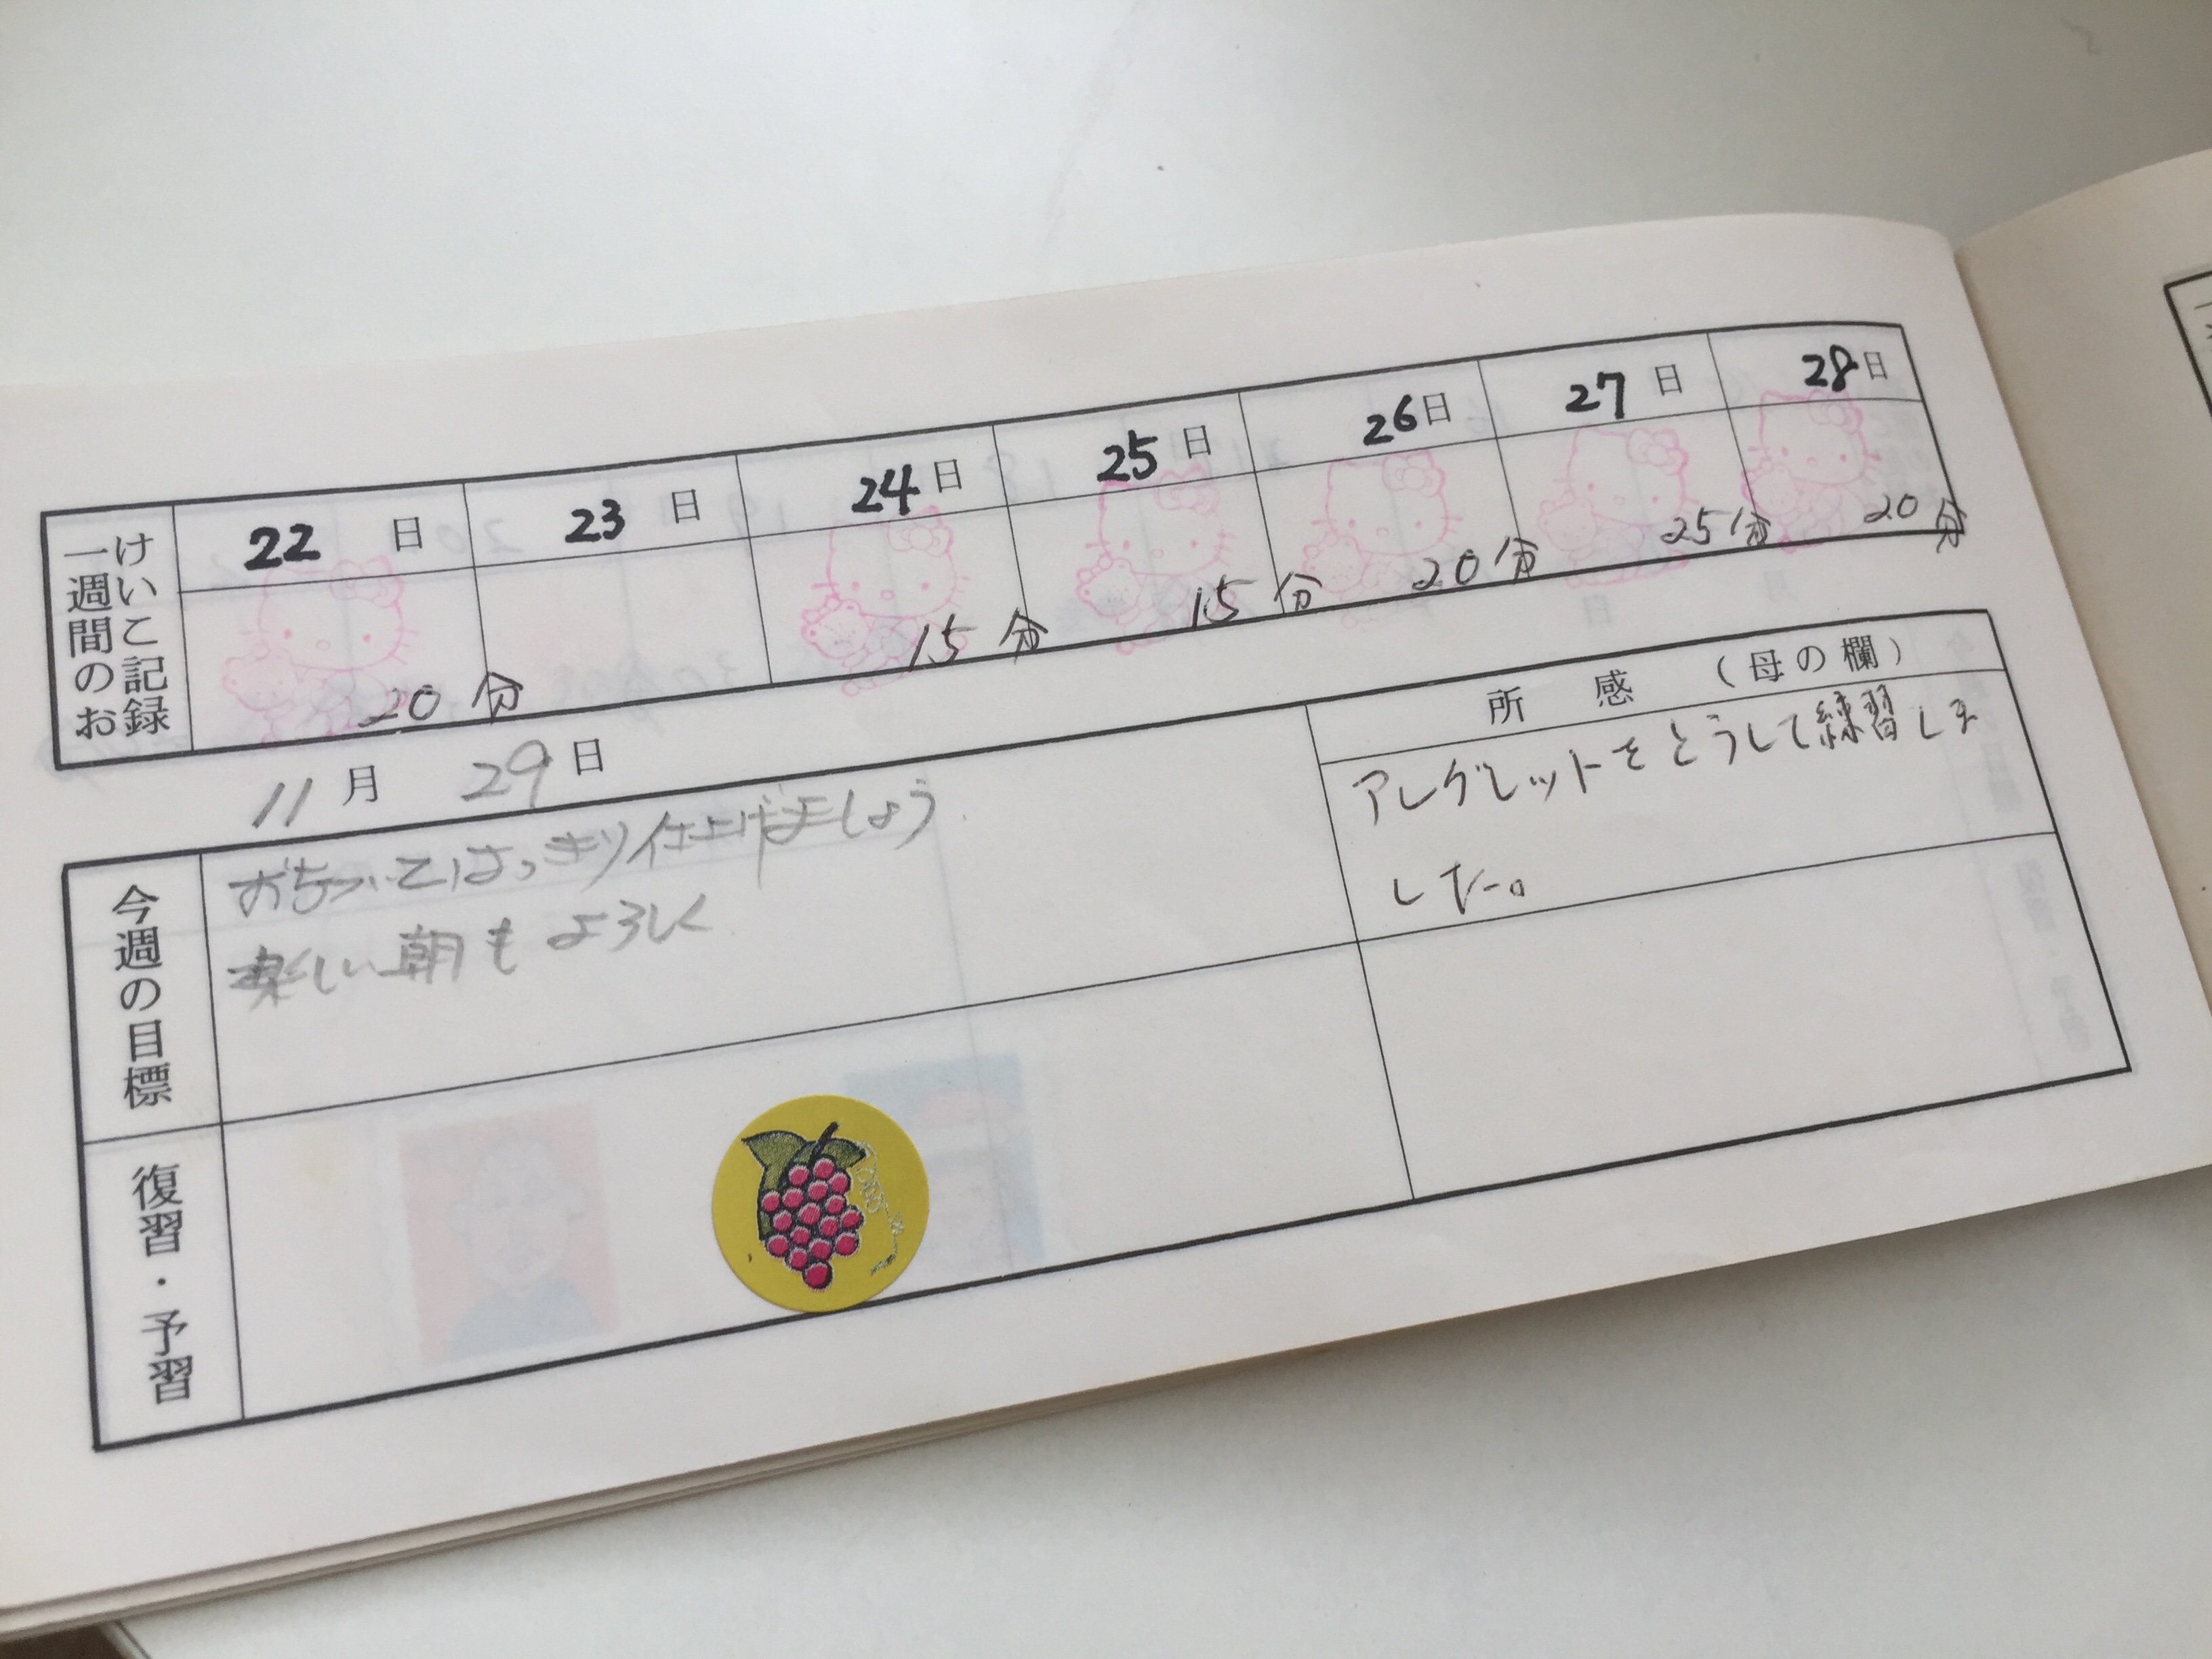 一週間のお
けいこ記録
22日 23日 24日 25日 26日 27日 28日
20分 15分 15分 20分 25分 20分
11月29日
今週の目標
おちついてはっきり仕上げましょう
楽しい朝もよろしく
所感（母の欄）
アレグレットをとうして練習しま
した。
復習・予習